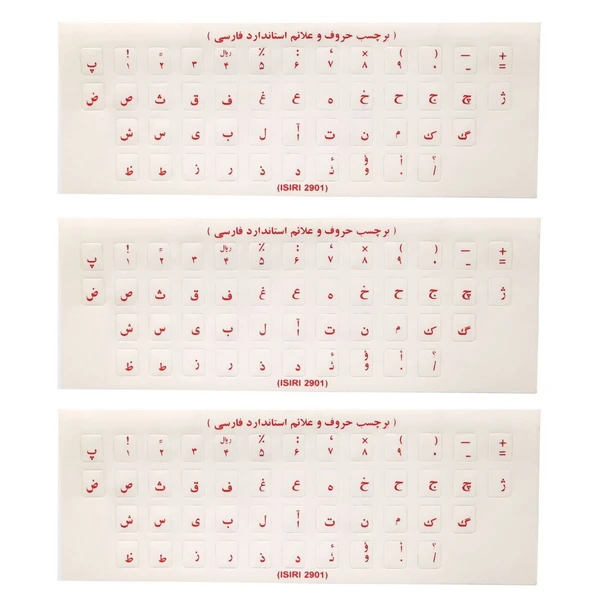 ( برچسب حروف و علائم استاندارد فارسی )
! × ، : ٪ ریال ء ) ( — +
پ ۱ ۲ ۳ ۴ ۵ ۶ ۷ ۸ ۹ ۰ - =
ض ص ث ق ف غ ع ه خ ح ج چ ژ
ش س ی ب ل آ ا ت ن م ک گ
ظ ط ز ر ذ د ئ ء ؤ و أ . ؟ /
(ISIRI 2901)
( برچسب حروف و علائم استاندارد فارسی )
! × ، : ٪ ریال ء ) ( — +
پ ۱ ۲ ۳ ۴ ۵ ۶ ۷ ۸ ۹ ۰ - =
ض ص ث ق ف غ ع ه خ ح ج چ ژ
ش س ی ب ل آ ا ت ن م ک گ
ظ ط ز ر ذ د ئ ء ؤ و أ . ؟ /
(ISIRI 2901)
( برچسب حروف و علائم استاندارد فارسی )
! × ، : ٪ ریال ء ) ( — +
پ ۱ ۲ ۳ ۴ ۵ ۶ ۷ ۸ ۹ ۰ - =
ض ص ث ق ف غ ع ه خ ح ج چ ژ
ش س ی ب ل آ ا ت ن م ک گ
ظ ط ز ر ذ د ئ ء ؤ و أ . ؟ /
(ISIRI 2901)